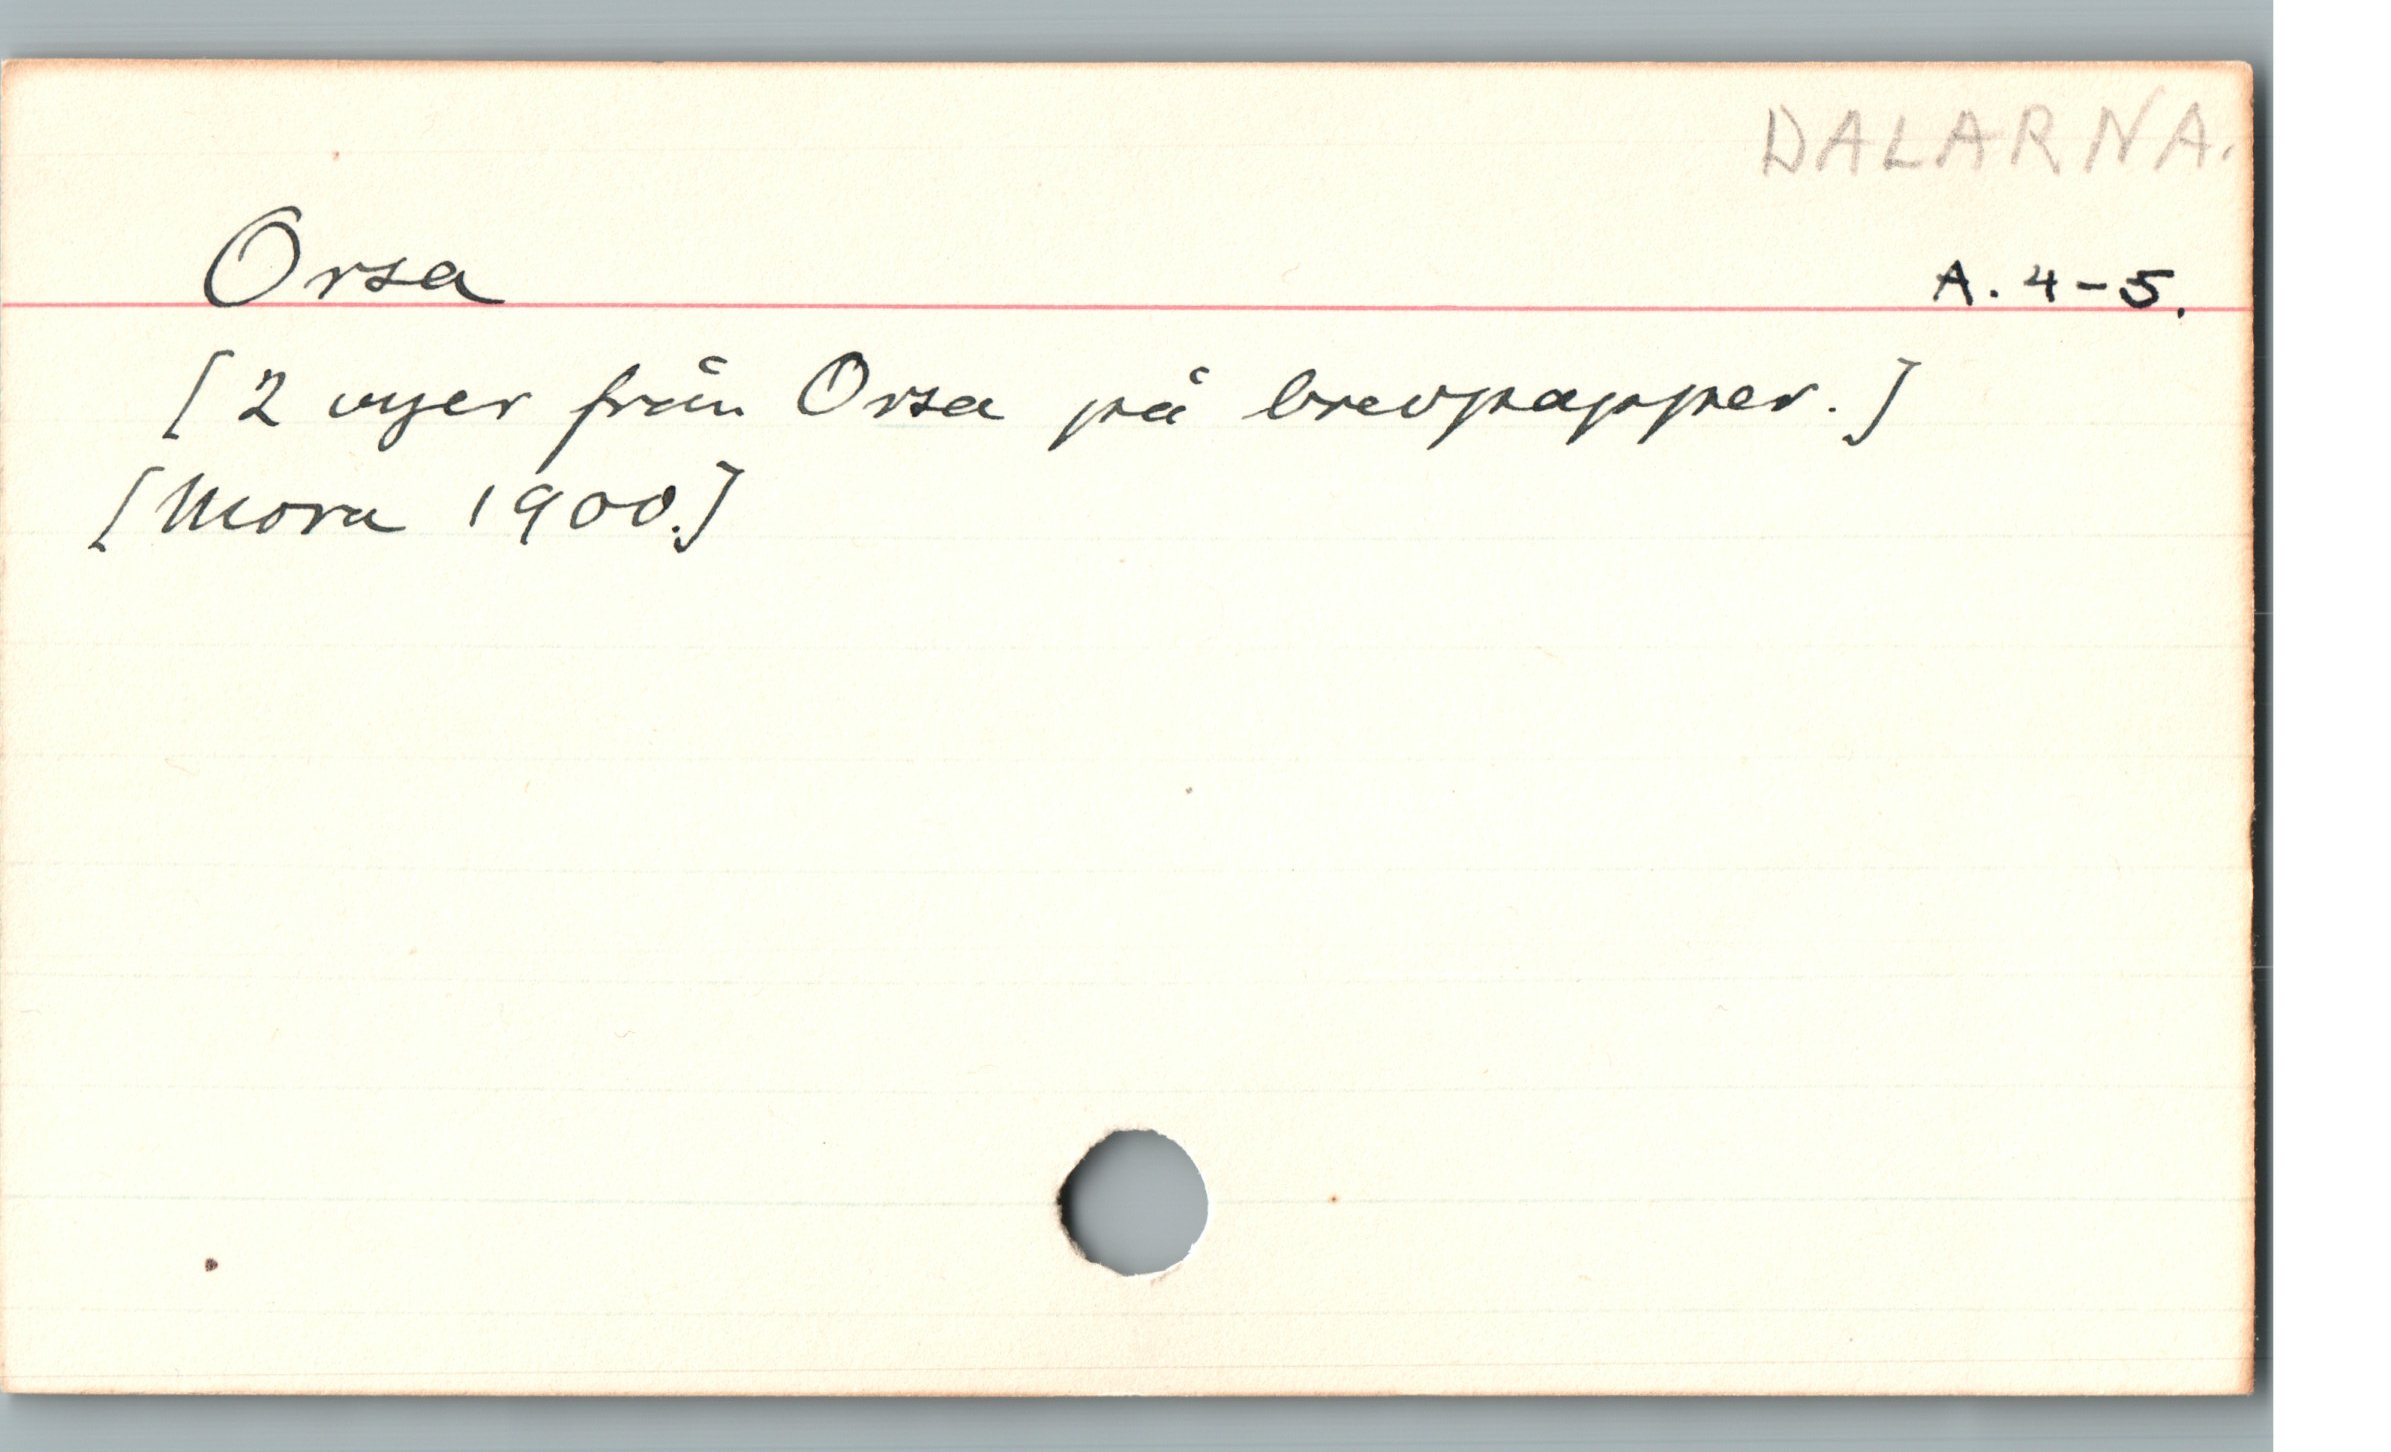 DALARNA.
Orsa A. 4-5.
[2 vyer från Orsa på brevpapper.]
[Mora 1900.]